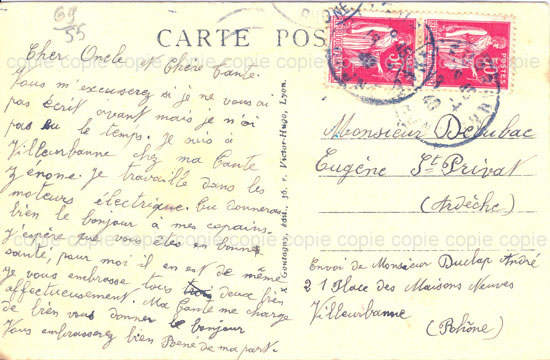 69
55
CARTE POS
Cher Oncle et Chère Tante.
Vous m'excuserez si je ne vous ai
pas écrit avant mais je n'ai
pas eu le temps. Je suis à
Villeurbanne chez ma Tante
Je travaille dans les
moteurs électrique. Tu donneras
bien le bonjour à mes copains.
J'espère que vous êtes en bonne
santé, pour moi il en est de même
je vous embrasse tous deux bien
affectueusement. Ma Tante me charge
de bien vous donner le bonjour
Vous embrasserez bien René de ma part.
X Goutagny, édit., 36, r. Victor-Hugo, Lyon.
Monsieur Deubac
Eugène St Privat
(Ardèche)
Envoi de Monsieur Duclap André
21 Place des Maisons Neuves
Villeurbanne
(Rhône)
copie copie copie copie copie copie copie